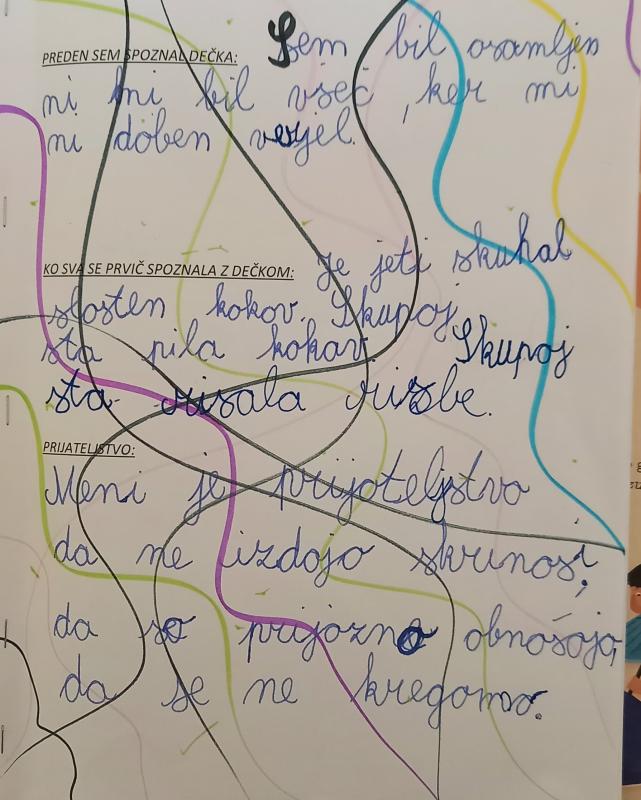 PREDEN SEM SPOZNAL DEČKA: Sem bil osamljen
ni mi bil všeč, ker mi
ni doben verjel.
KO SVA SE PRVIČ SPOZNALA Z DEČKOM: je jeti skuhal
slosten kokov. Skupoj
sta pila kokav. Skupoj
sta risala risbe.
PRIJATELJSTVO:
Meni je prijoteljstvo
da ne izdojo skrinosi,
da so prijozno obnošojo,
da se ne kregomo.